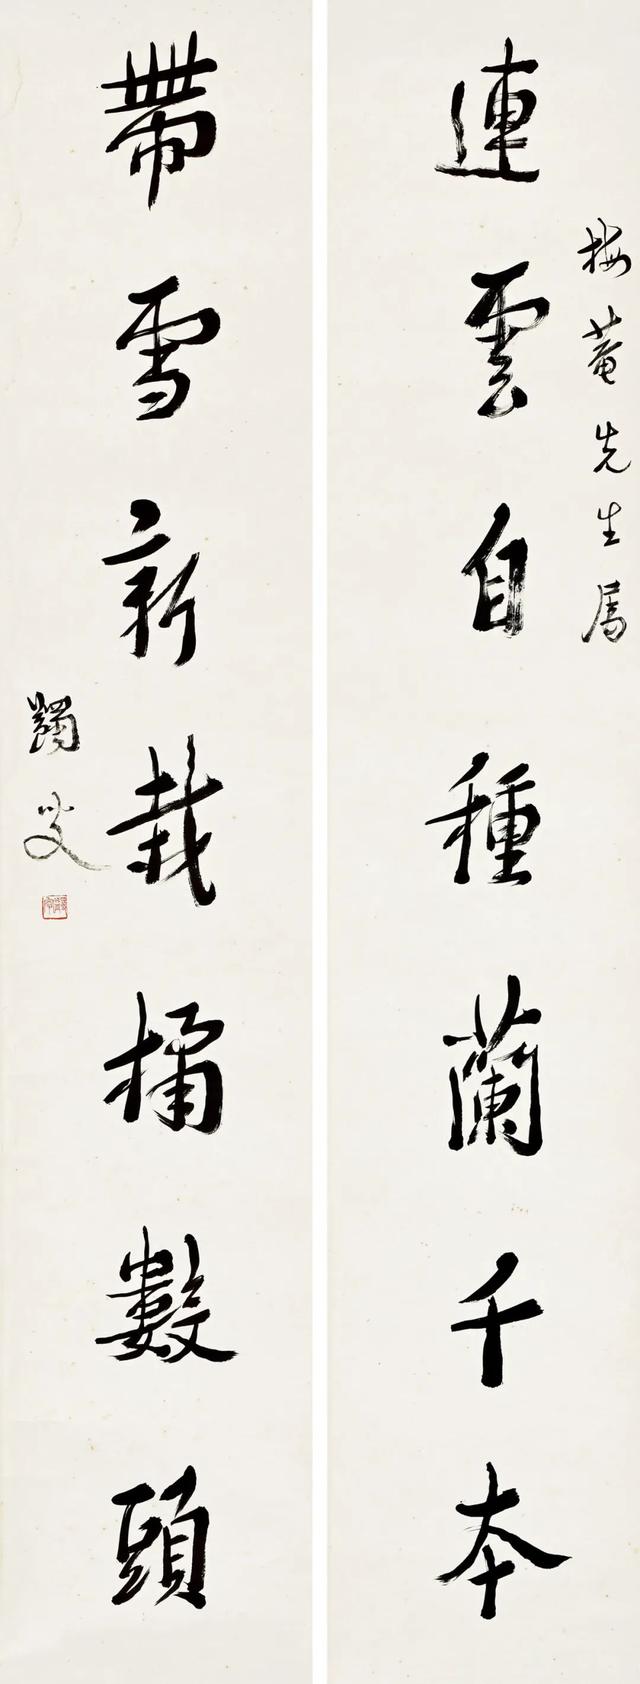 梅菴先生属
連雲自種蘭千本
帶雪新栽橘數頭
蠲叟